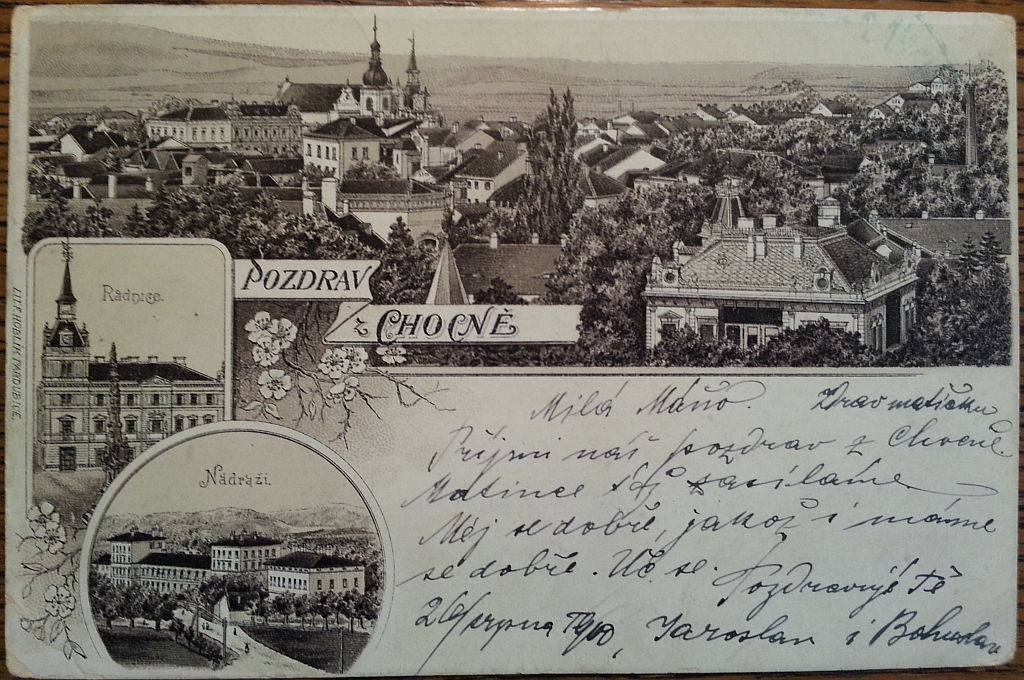 POZDRAV
z CHOCNĚ
Radnice.
LITH. HOBLÍK PARDUBICE.
Nádraží.
Milá Máňo. Zdrav matičku
Přijmi náš pozdrav z Chocně.
Matince též zasíláme.
Měj se dobře, jakož i máme
se dobře. Uč se. Pozdravují Tě
26/srpna 1900, Jaroslav i Bohuslav